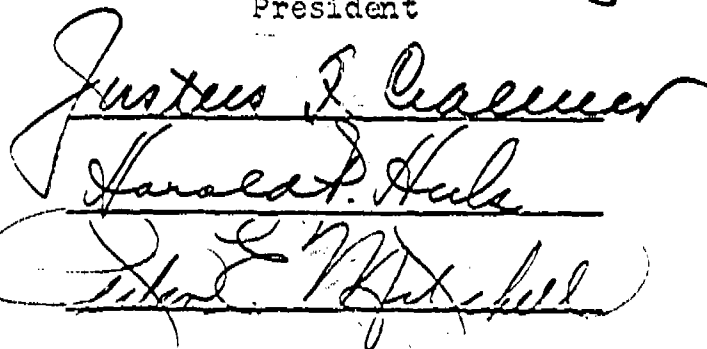 President
Justus F. Craemer
Harold P. Huls
E. Mitchell